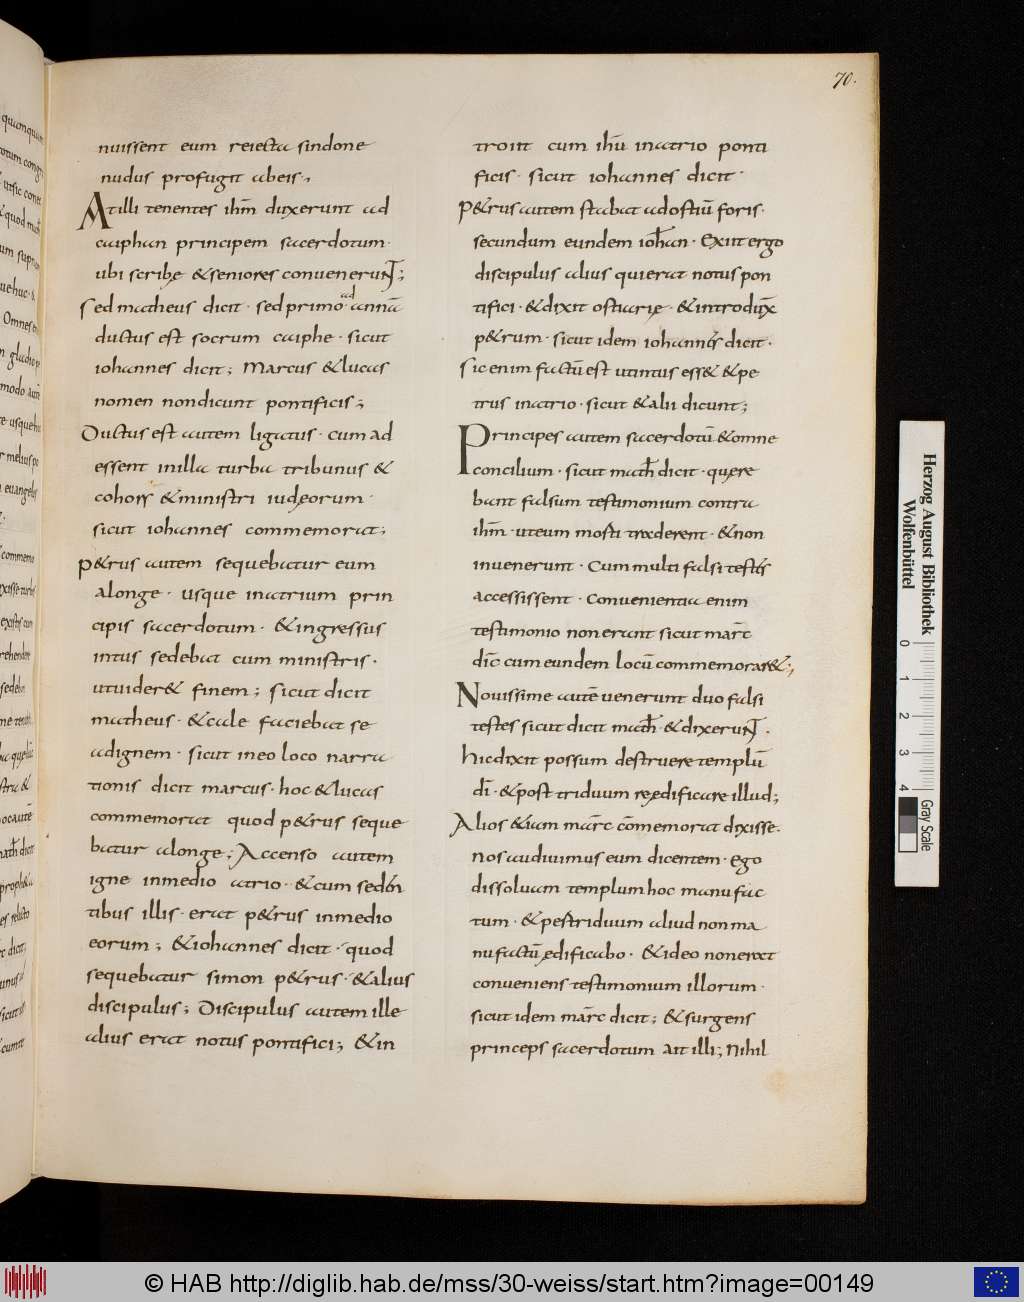 70.
nuissent eum reiecta sindone
nudus profugit abeis,
Atilli tenentes ihm̄ duxerunt ad
caiphan principem sacerdotum·
ubi scribę &seniores conueneruNT;
sed matheus dicit· sed primo· ad annā
ductus est socrum caiphe· sicut
iohannes dicit; Marcus &lucas
nomen nondicunt pontificis;
Ductus est autem ligatus· cum ad
essent inilla turba tribunus &
cohors &ministri iudęorum·
sicut iohannes commemorat;
p&rus autem sequebatur eum
alonge· usque inatrium prin
cipis sacerdotum· &ingressus
intus sedebat cum ministris·
utuider& finem; sicut dicit
matheus· &cale faciebat se
adignem· sicut ineo loco narra
tionis dicit marcus· hoc &lucas
commemorat quod p&rus seque
batur alonge; Accenso autem
igne inmedio atrio· &cum seden
tibus illis· erat p&rus inmedio
eorum; &iohannes dicit· quod
sequebatur simon p&rus· &alius
discipulus; Discipulus autem ille
alius erat notus pontifici; &in
troiit cum ihū inatrio ponti
ficis· sicut iohannes dicit·
P&rus autem stabat adostiū foris·
secundum eundem iohan· Exiit ergo
discipulus alius quierat notus pon
tifici· &dixit ostiarię· &introdūx
p&rum· sicut idem iohannes dicit·
sic enim factū est utintus ess& &pe
trus inatrio· sicut &alii dicunt;
Principes autem sacerdotū &omne
concilium· sicut math dicit· quęre
bant falsum testimonium contra
ihm̄· uteum morti traderent· &non
inuenerunt· Cum multi falsi testes
accessissent· Conuenientia enim
testimonio non erant sicut marc̄
dic̄ cum eundem locū commemorar&;,
Nouissime autē uenerunt duo falsi
testes sicut dicit math· &dixeruNT·
hicdixit possum destruere templū
dī· &post triduum reędificare illud;
Alios &iam marc̄ cōmemorat dixisse·
nos audiuimus eum dicentem· ego
dissoluam templum hoc manu fac
tum· &pestriduum aliud non ma
nu factū ędificabo· &ideo nonerat
conueniens testimonium illorum·
sicut idem marc̄ dicit; &surgens
princeps sacerdotum ait illi; Nihil
Herzog August Bibliothek
Wolfenbüttel
0 1 2 3 4
Gray Scale
© HAB http://diglib.hab.de/mss/30-weiss/start.htm?image=00149